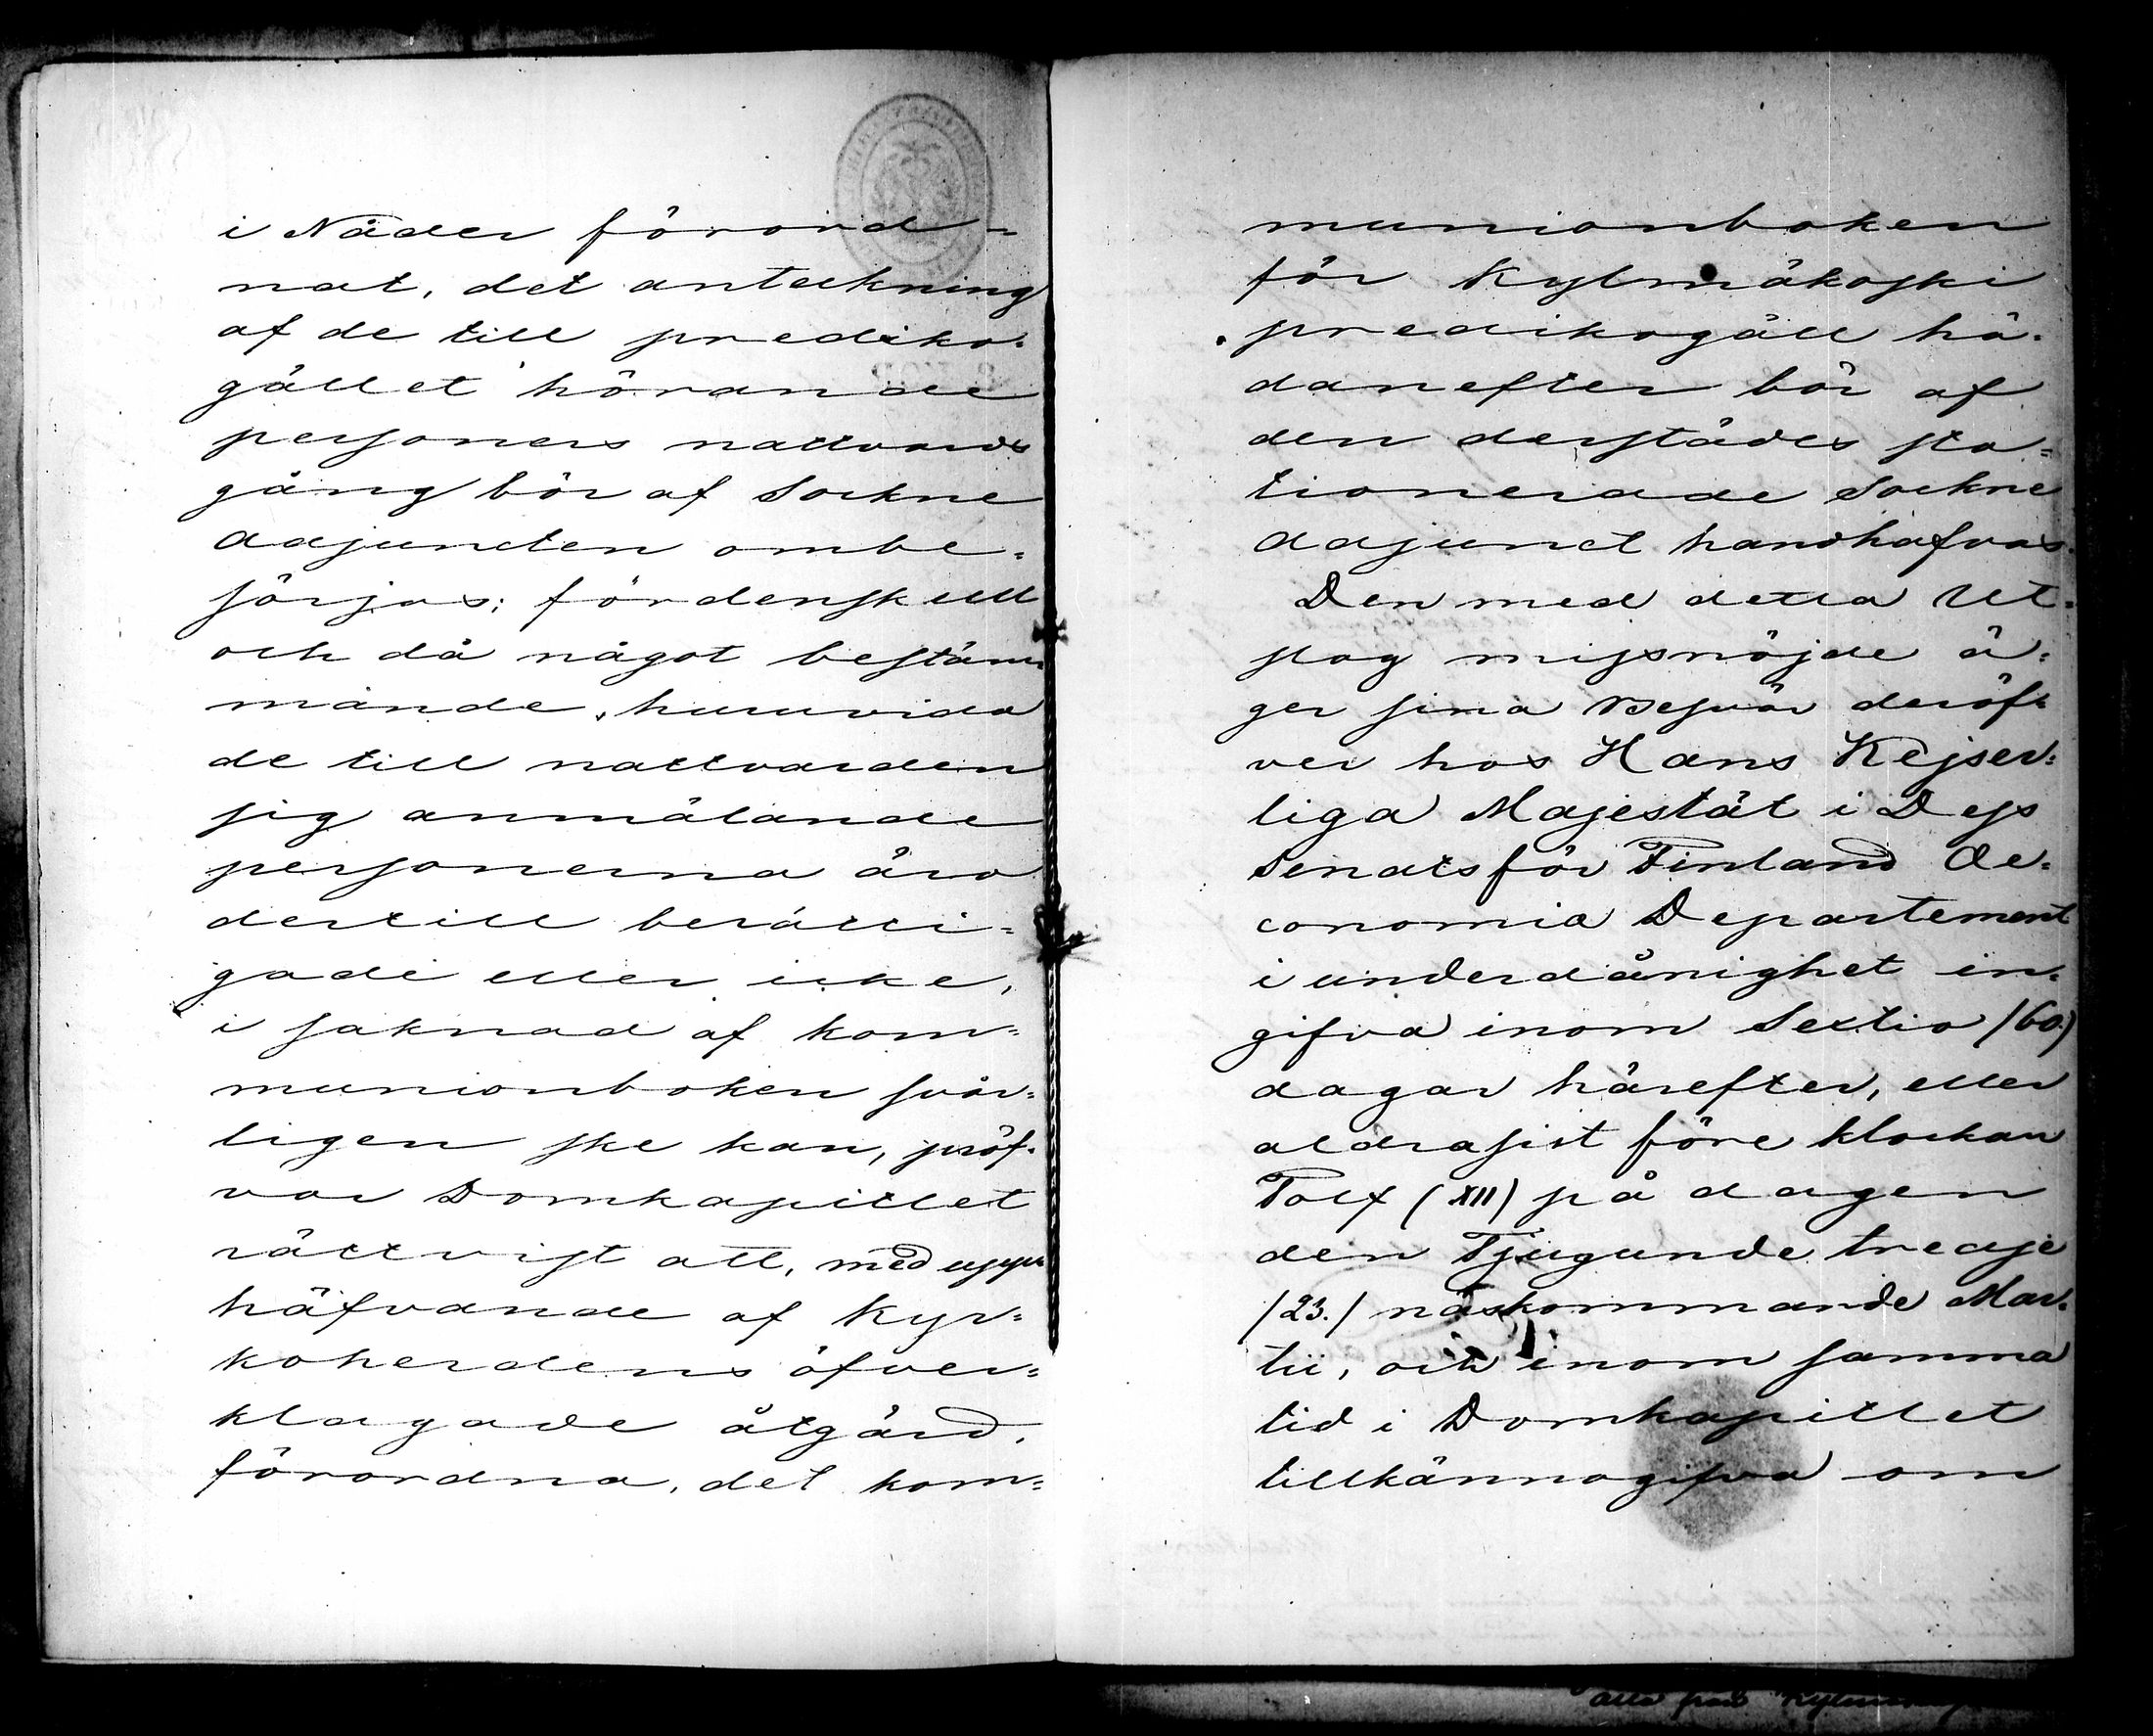 i Nåder förord-
nat, det anteckning
af de till prediko-
gället hörande
personers nattvards
gång bör af Sockne
adjuncten ombe-
sörjas; fördenskull
och då något bestäm-
mande, huruvida
de till nattvarden
sig anmälande
personerna äro
dertill berätti-
gade eller icke,
i saknad af kom-
munionboken svår-
ligen ske kan, pröf-
var Domkapitlet
rättvist att, med upp-
häfvande af Kyr-
koherdens öfver-
klagade åtgärd,
förordna, det kom-
munionboken
för Kylmäkoski
predikogäll hä-
danefter bör af
den derstädes sta-
tionerade Sockne
adjunct handhafvas.
Den med detta Ut-
slag missnöjde ä-
ger sina Besvär deröf-
ver hos Hans Kejser-
liga Majestät i Dess
Senats för Finland Oe-
conomie Departement
i underdånighet in-
gifva inom Sextio /60./
dagar härefter, eller
aldrasist före klockan
Tolf (XII) på dagen
den Tjugunde tredje
/23./ nästkommande Mar-
tii, och inom samma
tid i Domkapitlet
tillkännagifva om